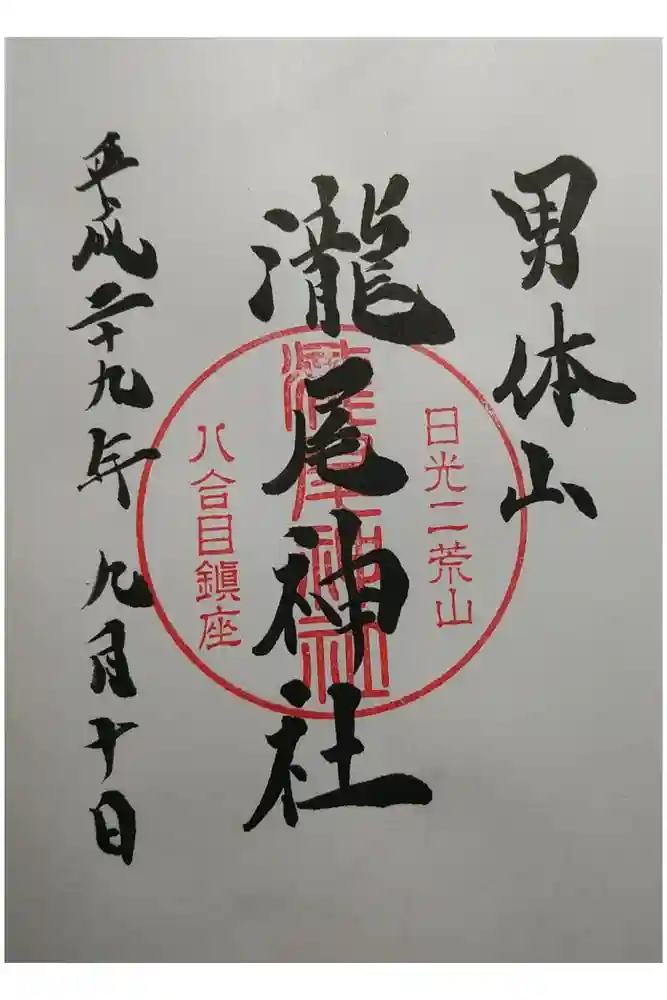 男体山
日光二荒山
瀧尾神社
瀧尾神社
八合目鎮座
平成二十九年九月十日